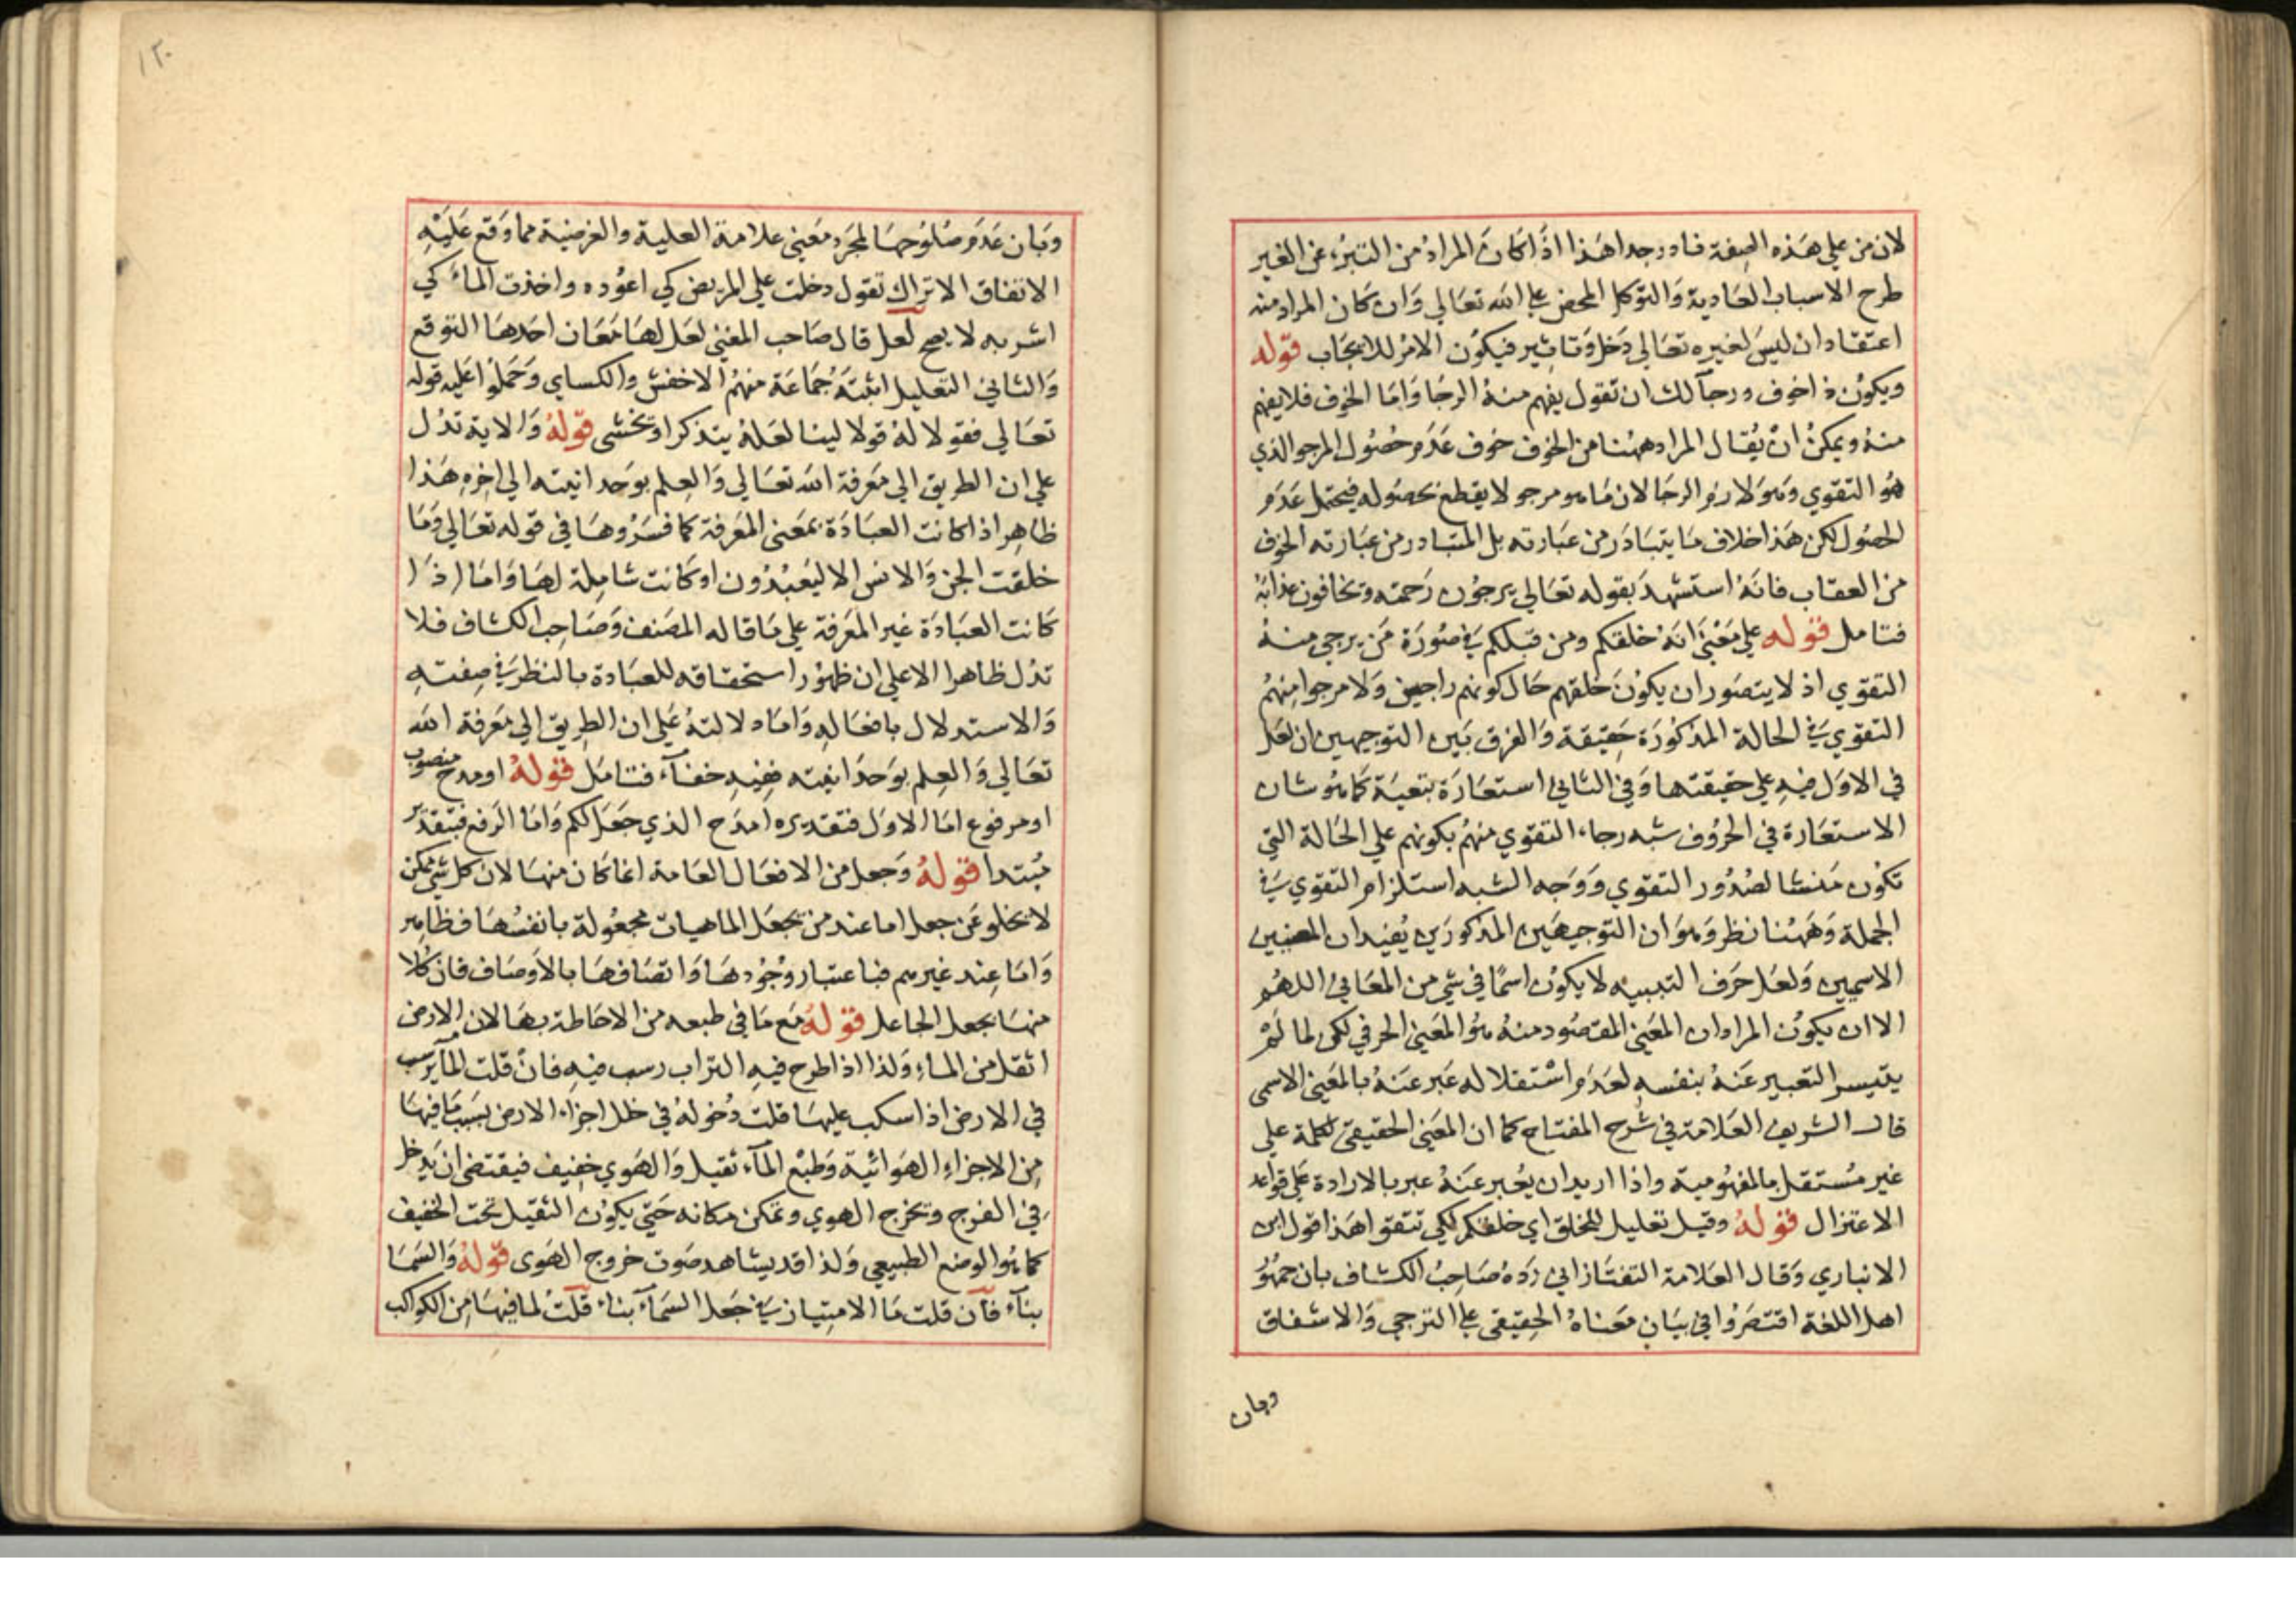 لان من علي هذه الصفة نادر جدا هذا اذا كان المراد من التبرء عن الغير
طرح الاسباب العادية والتوكل المحض علي الله تعالي وان كان المراد منه
اعتقاد ان ليس لغيره تعالي دخل وتاثير فيكون الامر للايجاب قوله
ويكون ذا خوف ورجآ لك ان تقول يفهم منه الرجا واما الخوف فلا يفهم
منه ويمكن ان يقال المراد ههنا من الخوف خوف عدم حصول المرجو الذي
هو التقوي وهو لازم الرجا لان ما هو مرجو لا يقطع بحصوله فيحتمل عدم
الحصول لكن هذا خلاف ما يتبادر من عبارته بل المتبادر من عبارته الخوف
من العقاب فانه استشهد بقوله تعالي يرجون رحمته ويخافون عذابه
فتامل قوله علي معني انه خلقكم ومن قبلكم في صورة من يرجي منه
التقوي اذ لا يتصور ان يكون خلقهم حال كونهم راجين ولا مرجوا منهم
التقوي في الحالة المذكورة حقيقة والفرق بين التوجهين ان لعل
في الاول فيه علي حقيقتها وفي الثاني استعارة تبعية كما هو شان
الاستعارة في الحروف شبه رجاء التقوي منهم بكونهم علي الحالة التي
تكون منشا لصدور التقوي ووجه الشبه استلزام التقوي في
الجملة وههنا نظر وهو ان التوجيهين المذكورين يفيدان المعنيين
الاسميين ولعل حرف التنبيه لا يكون اسما في شي من المعاني اللهم
الا ان يكون المراد ان المعني المقصود منه هو المعني الحرفي لكن لما لم
يتيسر التعبير عنه بنفسه لعدم اشتقلاله عبر عنه بالمعني الاسمي
قال الشريف العلامة في شرح المفتاح كما ان المعني الحقيقي لكلمة علي
غير مستقل بالمفهومية واذا اريد ان يعبر عنه عبر بالارادة علي قواعد
الاعتزال قوله وقيل تعليل للخلق اي خلقكم لكي تتقوا هذا قول ابن
الانباري وقال العلامة التفتازاني رده صاحب الكشاف بان جمهور
اهل اللغة اقتصروا في بيان معناه الحقيقي علي الترجي والاشفاق
وبان
١٢٠
وبان عدم صلوحها لمجرد معني علامة العلية والغرضية مما وقع عليه
الاتفاق الا تراك تقول دخلت علي المريض كي اعوده واخذت الماء كي
اشربه لا يصح لعل قال صاحب المغني لعل لها معان احدها التوقع
والثاني التعليل اثبته جماعة منهم الاخفش والكساي وحملوا عليه قوله
تعالي فقولا له قولا لينا لعله يتذكر او يخشي قوله والاية تدل
علي ان الطريق الي معرفة الله تعالي والعلم بوحدانيته الي اخره هذا
ظاهر اذا كانت العبادة بمعني المعرفة كما فسروها في قوله تعالي وما
خلقت الجن والانس الا ليعبدون او كانت شاملة لها واما اذا
كانت العبادة غير المعرفة علي ما قاله المصنف وصاحب الكشاف فلا
تدل ظاهرا الا علي ان ظهور استحقاقه للعبادة بالنظر في صفته
والاستدلال بافعاله واما دلالته علي ان الطريق الي معرفة الله
تعالي والعلم بوحدانيته ففيه خفآء فتامل قوله او مدح منصوب
او مرفوع اما الاول فتقديره امدح الذي جعل لكم واما الرفع فبتقدير
مبتدا قوله وجعل من الافعال العامة انما كان منها لان كل شي ممكن
لا يخلو عن جعل اما عند من يجعل الماهيات مجعولة بانفسها فظاهر
واما عند غيرهم فباعتبار وجودها واتصافها بالاوصاف فان كلا
منها بجعل الجاعل قوله مع ما في طبعه من الاحاطة بها لان الارض
اثقل من الماء ولذا اذا طرح فيه التراب رسب فيه فان قلت المآ يرسب
في الارض اذا سكب عليها قلت دخوله في خلل اجزاء الارض بسبب ما فيها
من الاجزاء الهوائية وطبع المآء ثقيل والهوي خفيف فيقتضي ان يدخل
في الفرج ويخرج الهوي ويمكن مكانه حتي يكون الثقيل تحت الخفيف
كما هو الوضع الطبيعي ولذا قد يشاهد صوت خروج الهوى قوله والسما
بنآء فان قلت ما الامتياز في جعل السمآء بناء قلت لما فيها من الكواكب